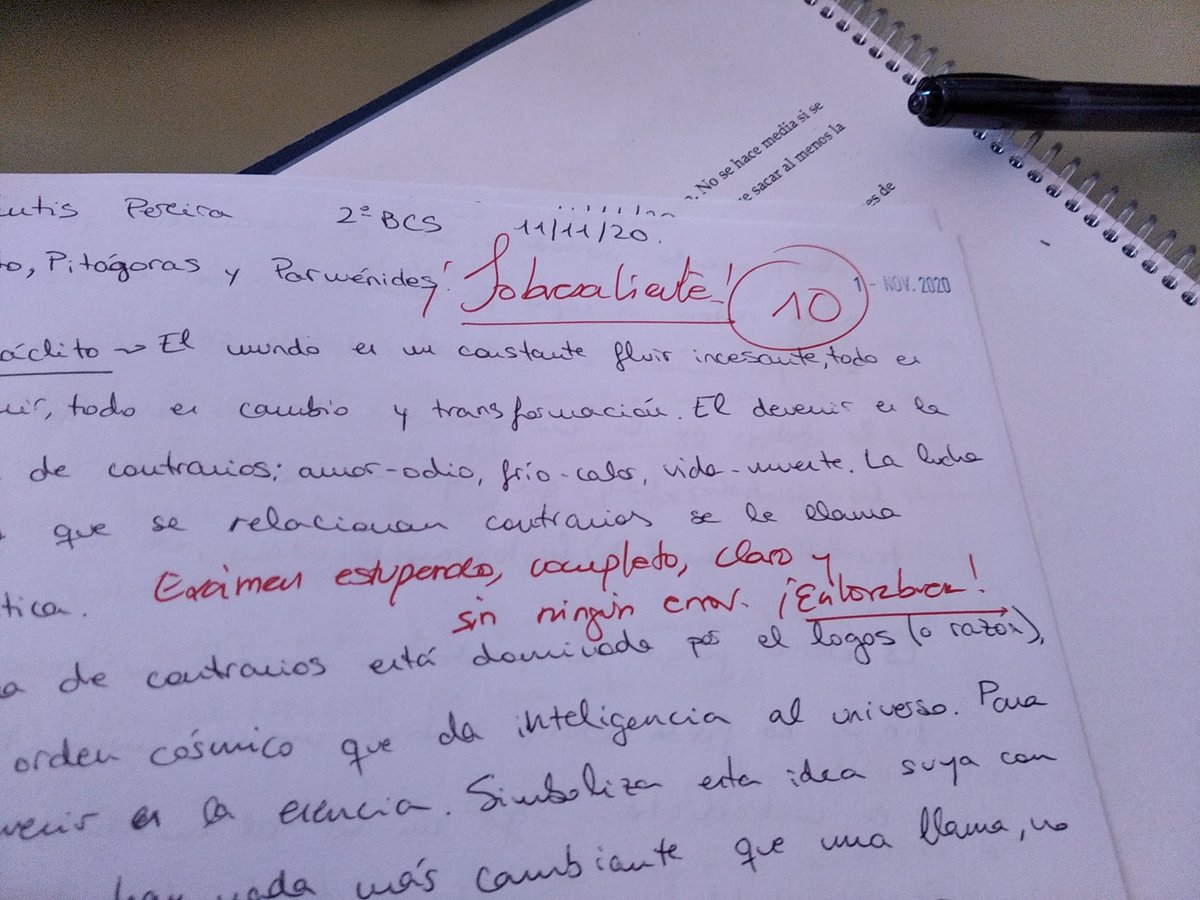 . No se hace media si se
e sacar al menos la
es de
Pereira 2º BCS 11/11/20.
to, Pitágoras y Parménides
¡Sobresaliente! 10
1 - NOV. 2020
áclito → El mundo es un constante fluir incesante, todo es
uir, todo es cambio y transformación. El devenir es la
de contrarios: amor-odio, frío-calor, vida-muerte. La lucha
que se relacionan contrarios se le llama
Exámen estupendo, completo, claro y
sin ningún error. ¡Enhorabuena!
tica.
a de contrarios está dominada por el logos (o razón),
orden cósmico que da inteligencia al universo. Para
venir es la esencia. Simboliza esta idea suya con
hay nada más cambiante que una llama, no